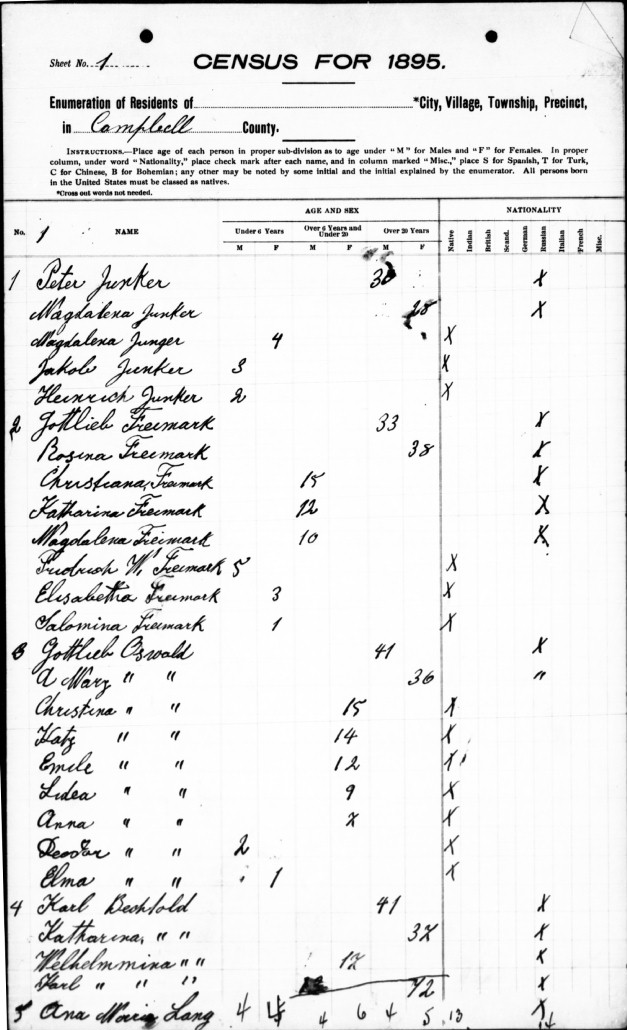 Sheet No. 1
CENSUS FOR 1895.
Enumeration of Residents of *City, Village, Township, Precinct,
in Campbell County.
INSTRUCTIONS.—Place age of each person in proper sub-division as to age under "M" for Males and "F" for Females. In proper
column, under word "Nationality," place check mark after each name, and in column marked "Misc.," place S for Spanish, T for Turk,
C for Chinese, B for Bohemian; any other may be noted by some initial and the initial explained by the enumerator. All persons born
in the United States must be classed as natives.
*Cross out words not needed.
AGE AND SEX NATIONALITY
No. 1 NAME Under 6 Years Over 6 Years and Under 20 Over 20 Years Native Indian British Scand. German Russian Italian French Misc.
M F M F M F
1 Peter Junker 30 X
Magdalena Junker 28 X
Magdalena Junger 4 X
Jakob Junker 3 X
Heinrich Junker 2 X
2 Gottlieb Freimark 33 X
Rosina Freimark 38 X
Christiana Freimark 15 X
Katharina Freimark 12 X
Magdalena Freimark 10 X
Fridrich W. Freimark 5 X
Elisabetha Freimark 3 X
Salomina Freimark 1 X
3 Gottlieb Oswald 41 X
A Mary " " 36 "
Christina " " 15 X
Katy " " 14 X
Emile " " 12 X
Lidea " " 9 X
Anna " " X
" " 2 X
Elma " " 1 X
4 Karl Bechtold 41 X
Katharina " " X
Welhelmmina " " X
Karl " " " X
5 Ana Maria Lang 72 X
4 4 4 6 4 5 13 4